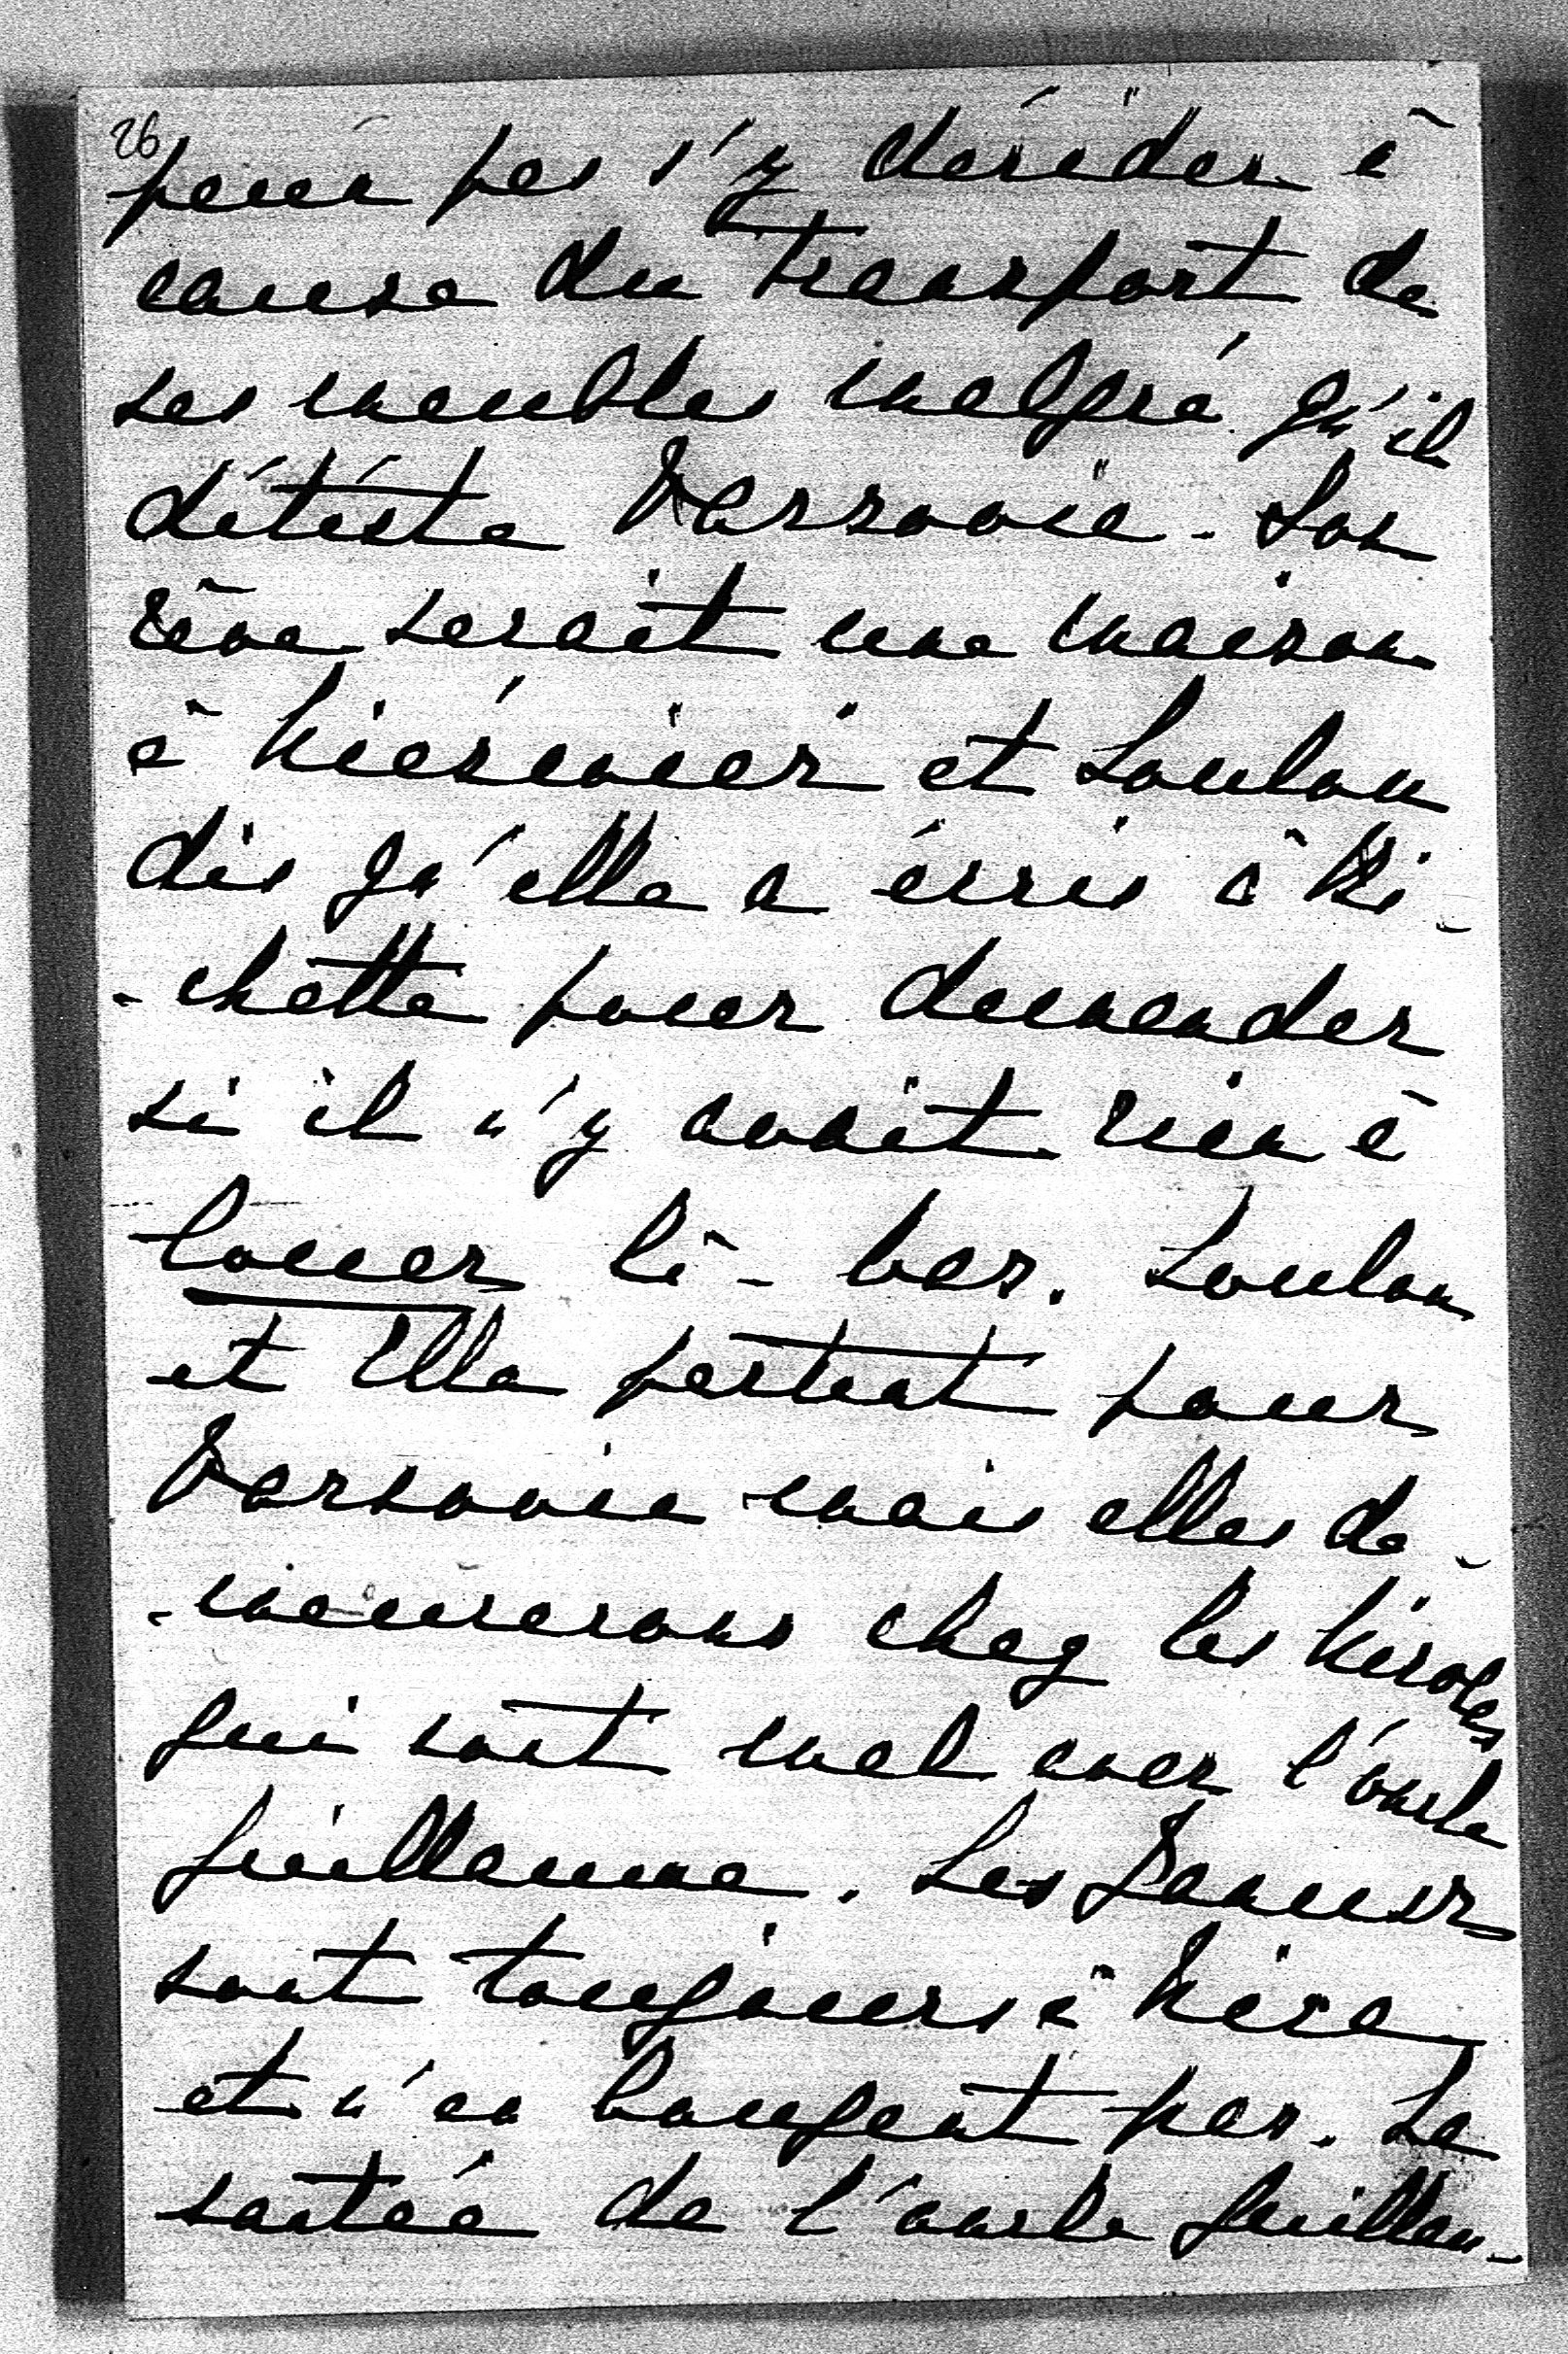 26
peux pas s'y décider à
cause du transport de
ses meubles malgré qu'il
détéste Varsovie. Son
rêve serait une maison
à et Loulou
dis qu'elle a écris à Ni-
-chette pour demander
si il n'y avait rien à
louer là-bas. Loulou
et Ella partent pour
Varsovie mais elles de-
-meurerons chez les
qui sont mal avec l'oncle
Guillaume. Les
sont toujours à
et n'en bougent pas. La
santée de l'oncle Guillau-